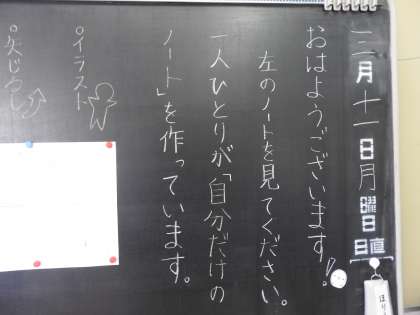 十二月十一日月曜日
日直
おはようございます!
左のノートを見てください。
一人ひとりが「自分だけの
ノート」を作っています。
○イラスト
○矢じるし